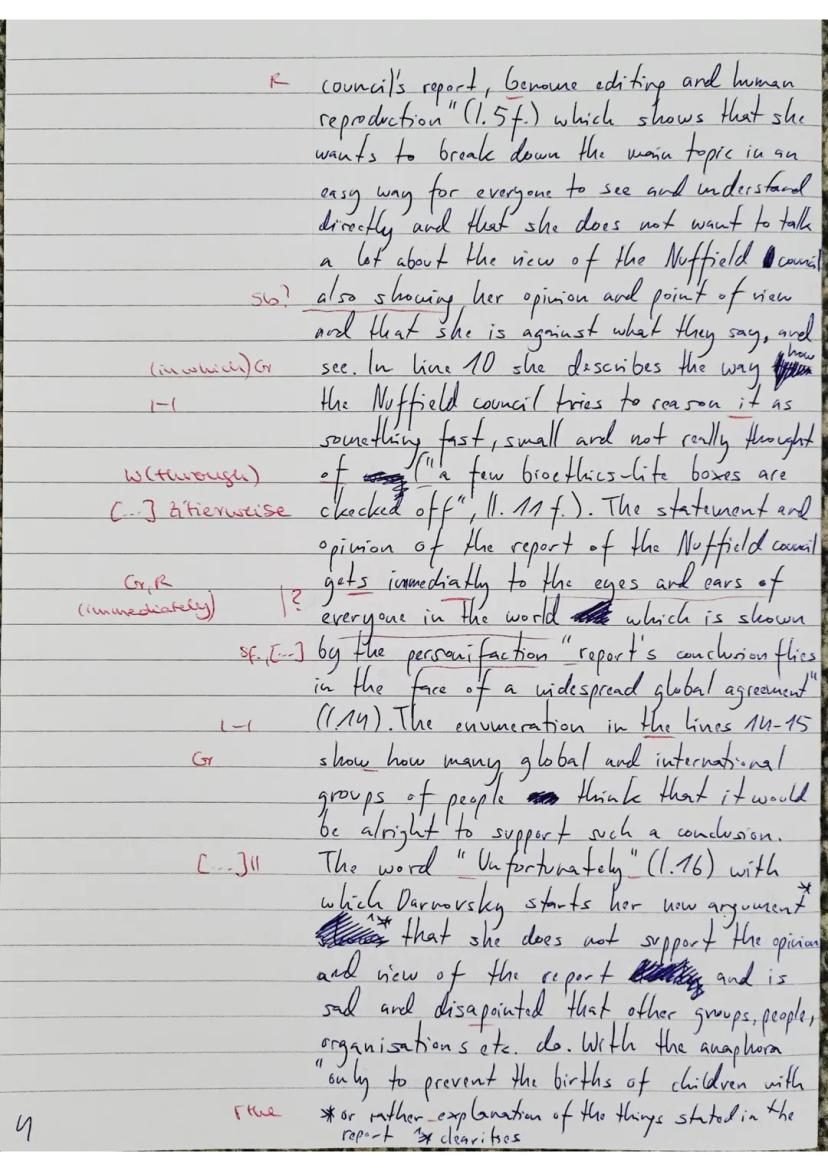 R council's report, Genome editing and human
reproduction" (l.5f.) which shows that she
wants to break down the main topic in an
easy way for everyone to see and understand
directly and that she does not want to talk
a lot about the view of the Nuffield council
Sb? also showing her opinion and point of view
and that she is against what they say, and
(in which) Gr see. In line 10 she describes the way how
|-| the Nuffield council tries to reason it as
something fast, small and not really thought
W(through) of ("a few bioethics-lite boxes are
[...] Zitierweise checked off", ll. 11f.). The statement and
opinion of the report of the Nuffield council
Gr, R gets immediatly to the eyes and ears of
(immediately) |? everyone in the world which is shown
Sf., [...] by the personifaction "report's conclusion flies
in the face of a widespread global agreement"
|-| (l.14). The enumeration in the lines 14-15
Gr show how many global and international
groups of people think that it would
be alright to support such a conclusion.
[...]" The word "Unfortunately" (l.16) with
which Darnovsky starts her new argument*
** that she does not support the opinion
and view of the report and is
sad and disapointed that other groups, people,
organisations etc. do. With the anaphora
"only to prevent the births of children with
the * or rather explanation of the things stated in the
report ** clearifies
4